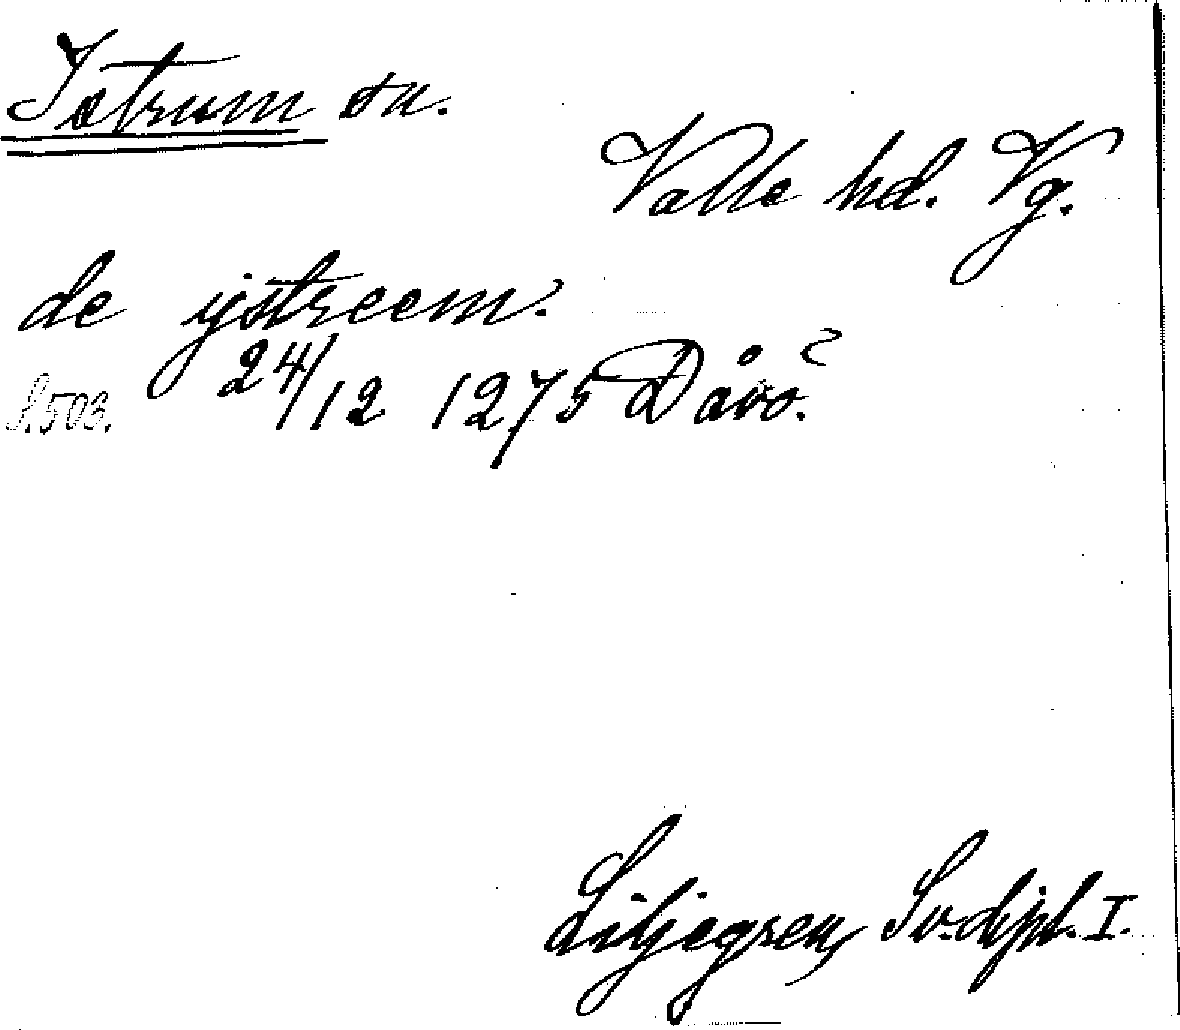 Istrum sn.
Valle hd. Vg.
de ijstreem.
24/12 1275
S. 503.
Liljegren, Sv. dipl. I.